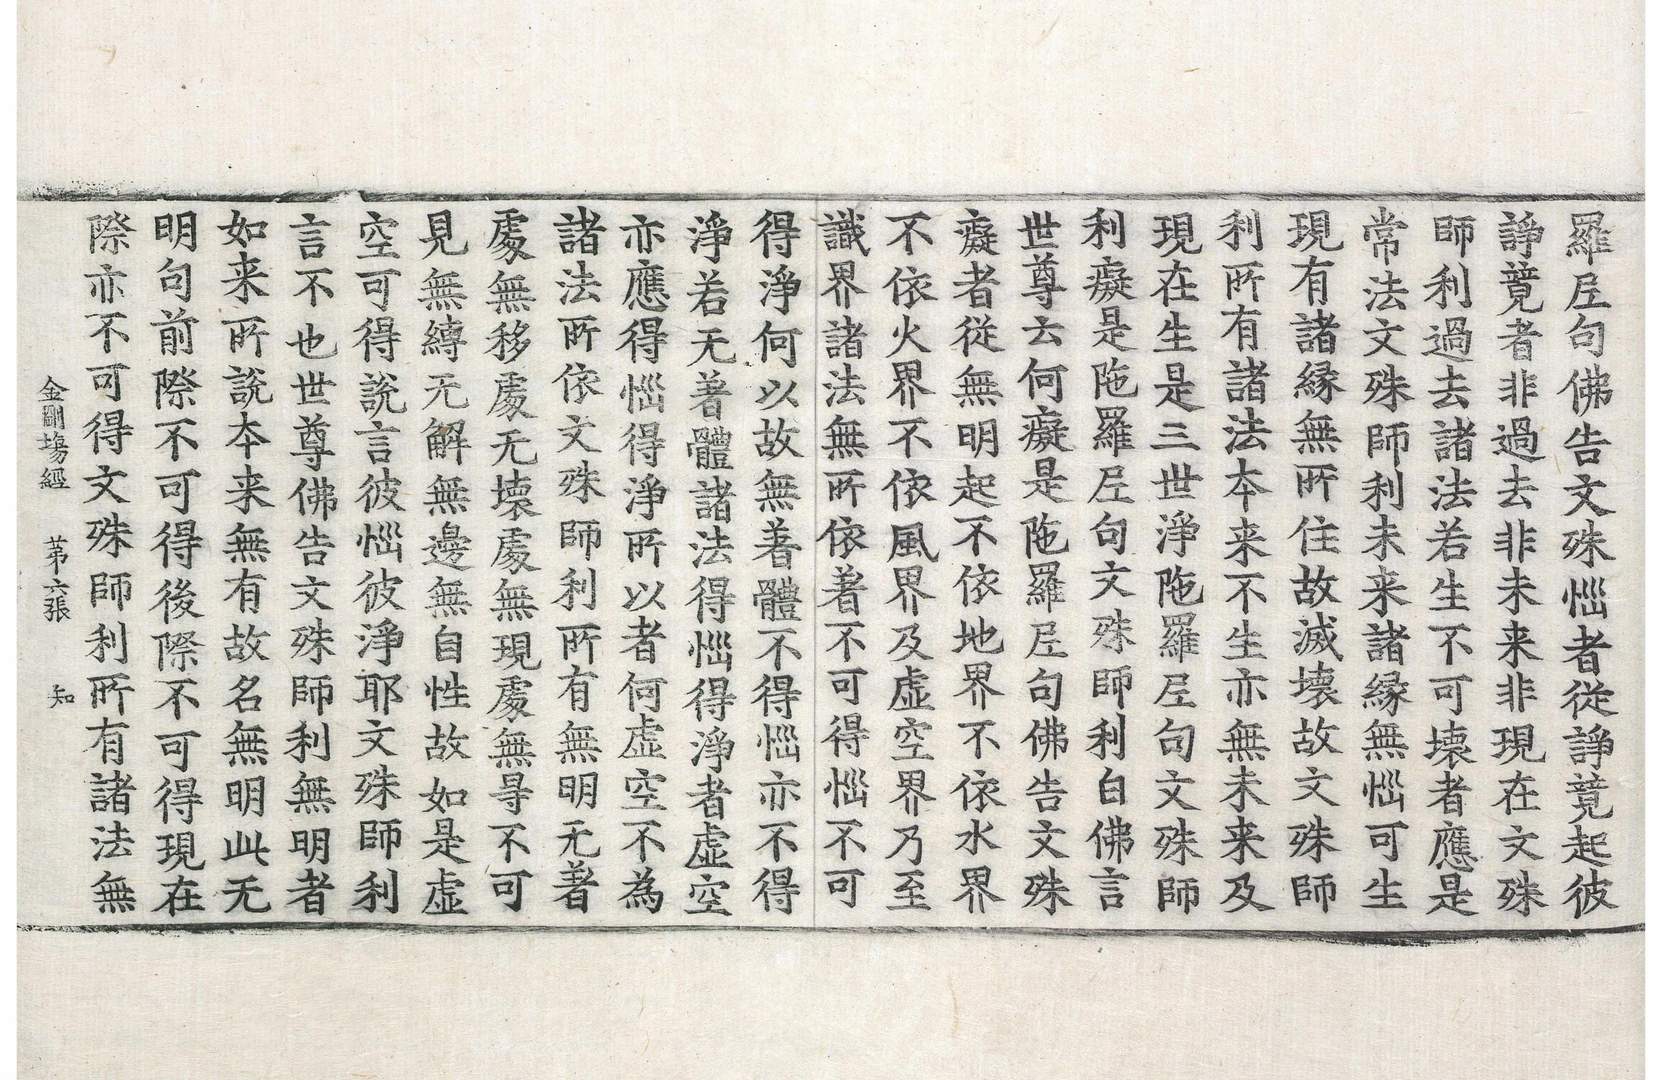 羅𡰱句佛告文殊惱者從諍竟起彼
諍竟者非過去非未来非現在文殊
師利過去諸法若生不可壊者應是
常法文殊師利未来諸縁無惱可生
現有諸縁無所住故滅壊故文殊師
利所有諸法本来不生亦無未来及
現在生是三世淨陁羅𡰱句文殊師
利癡是陁羅𡰱句文殊師利白佛言
世尊云何癡是陁羅𡰱句佛告文殊
癡者從無明起不依地界不依水界
不依火界不依風界及虚空界乃至
識界諸法無所依著不可得惱不可
得淨何以故無著體不得惱亦不得
淨若无著體諸法得惱得淨者虚空
亦應得惱得淨所以者何虚空不為
諸法所依文殊師利所有無明无著
處無移處无壊處無現處無㝵不可
見無縛无解無邊無自性故如是虚
空可得説言彼惱彼淨耶文殊師利
言不也世尊佛告文殊師利無明者
如来所説本来無有故名無明此无
明句前際不可得後際不可得現在
際亦不可得文殊師利所有諸法無
金剛場經 苐六張 知